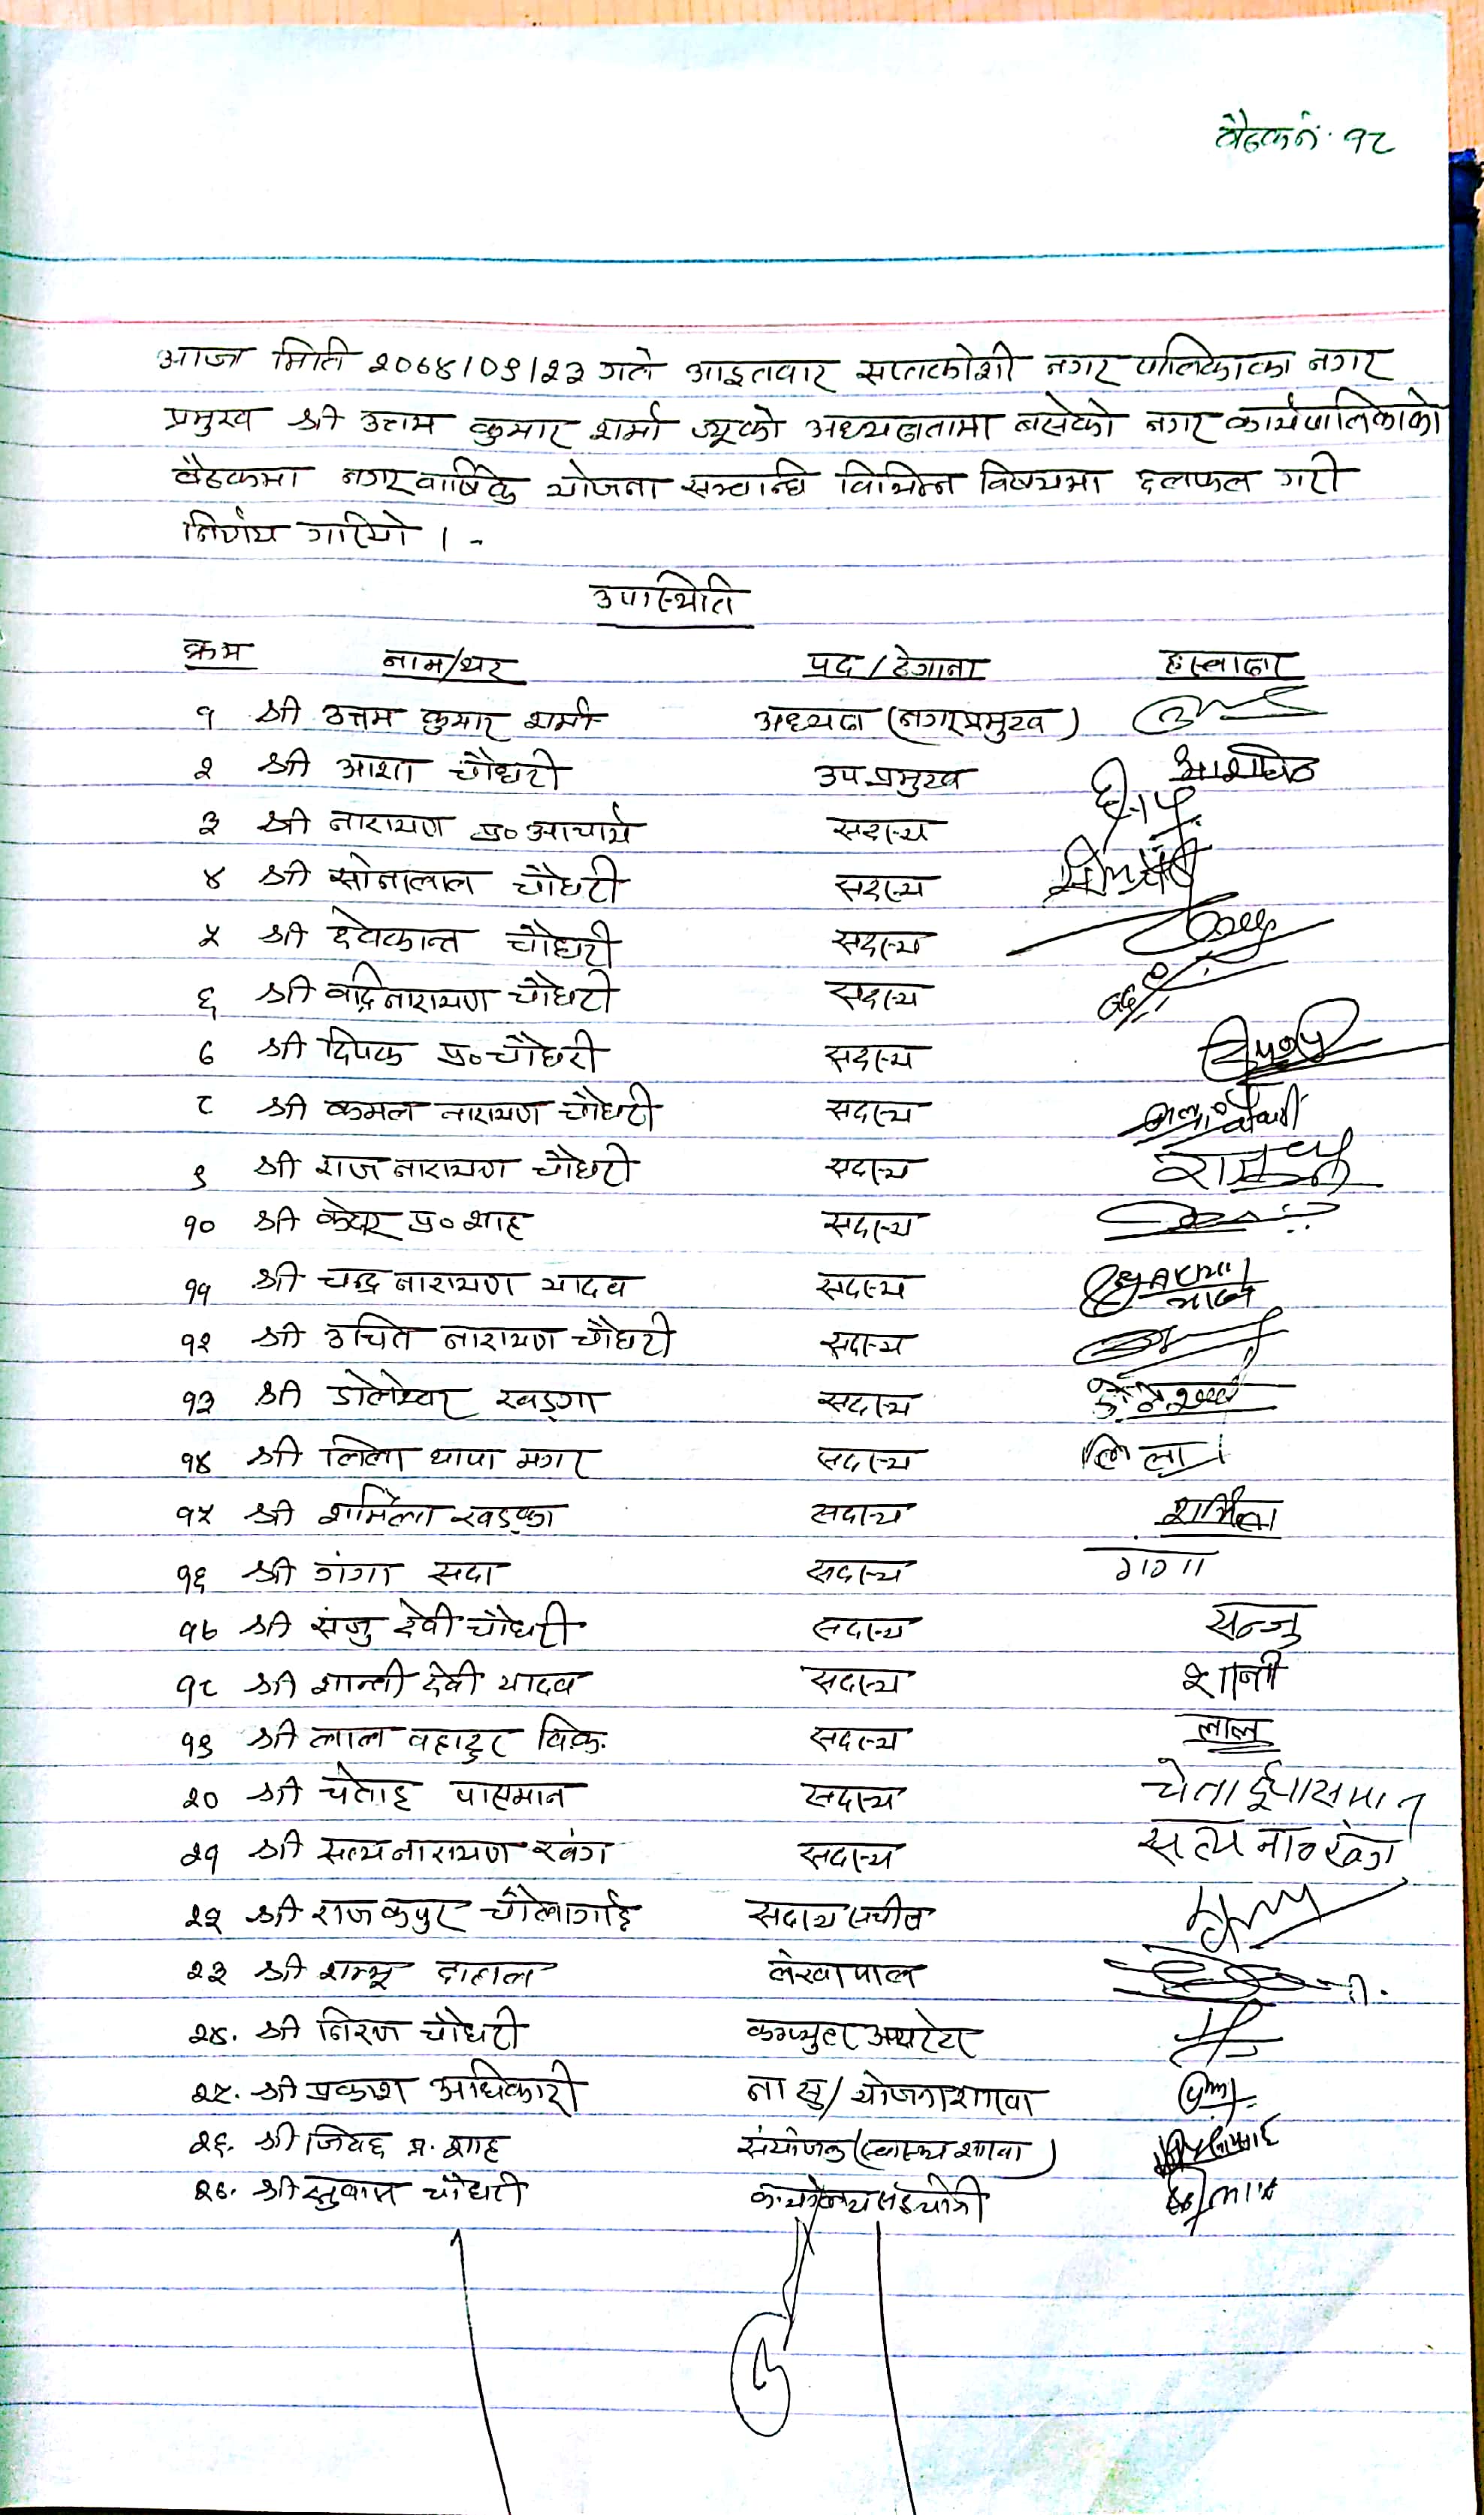 बैठक नं. १८
आज मिति २०७४/०९/२३ गते आइतवार सप्तकोशी नगर पालिकाका नगर
प्रमुख श्री उत्तम कुमार शर्मा ज्यूको अध्यक्षतामा बसेको नगर कार्यपालिकाको
बैठकमा नगर वार्षिक योजना सम्वान्धि विभिन्न विषयमा छलफल गरी
निर्णय गरियो । -
उपस्थिति
क्रम नाम/थर पद/ठेगाना हस्ताक्षर
१ श्री उत्तम कुमार शर्मा अध्यक्ष (नगरप्रमुख)
२ श्री आशा चौधरी उपप्रमुख
३ श्री नारायण प्र० आचार्य सदस्य
४ श्री सोनालाल चौधरी सदस्य
५ श्री देवकान्त चौधरी सदस्य
६ श्री वद्रिनारायण चौधरी सदस्य
७ श्री दिपक प्र० चौधरी सदस्य
८ श्री कमल नारायण चौधरी सदस्य
९ श्री राज नारायण चौधरी सदस्य
१० श्री केदार प्र० शाह सदस्य
११ श्री चन्द्र नारायण यादव सदस्य
१२ श्री उचित नारायण चौधरी सदस्य
१३ श्री डोलेश्वर खड्गा सदस्य
१४ श्री लिला थापा मगर सदस्य लिला
१५ श्री शर्मिला खड्का सदस्य शर्मिला
१६ श्री गंगा सदा सदस्य गगा
१७ श्री संजु देवी चौधरी सदस्य सन्जु
१८ श्री शान्ती देवी यादव सदस्य शान्ती
१९ श्री लाल वहादुर विक. सदस्य लाल
२० श्री चेताइ पासमान सदस्य चेताई पासमान
२१ श्री सत्य नारायण खंग सदस्य सत्य ना० खंग
२२ श्री राजकपुर चौलागाई सदस्य सचीव
२३ श्री शम्भू दाहाल लेखापाल
२४. श्री निरज चौधरी कम्प्युटर अपरेटर
२५. श्री प्रकाश अधिकारी ना सु/योजना शाखा
२६. श्री जिवछ प्र. शाह संयोजक (स्वास्थ्य शाखा)
२७. श्री चौधरी